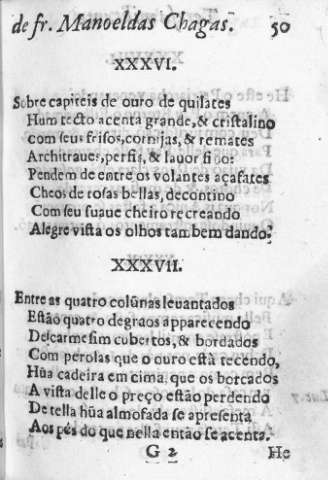 de fr. Manoeldas Chagas. 50
XXXVI.
Sobre capiteis de ouro de quilates
Hum tecto acenta grande, & cristalino
com seus frisos, cornijas, & remates
Architraues, perfis, & lauor
Pendem de entre os volantes açafates
Cheos de rosas bellas, decontino
Com seu suaue cheiro recreando
Alegre vista os olhos tambem dando:
XXXVII.
Entre as quatro colũnas leuantados
Estão quatro degraos apparecendo
Descarmesim cubertos, & bordados
Com perolas que o ouro està tecendo,
Hũa cadeira em cima, que os borcados
A vista delle o preço estão perdendo
De tella hũa almofada se apresenta
Aos pés do que nella então se acenta.
G 2 He